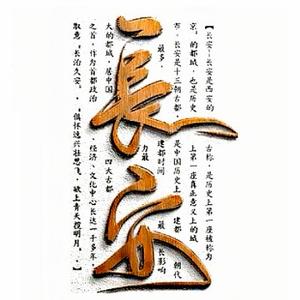 長安
【长安·长安是西安的 古称,是历史上第一座被称为
京,的都城,也是历史 上第一座真正意义上的城
市,长安是十三朝古都, 是中国历史上 建都 朝代
最多, 建都时间 最 长影响
力最
大的都城,居中国 四大古都
之首,作为首都政治 、经济、文化中心长达一千多年,
取意,长治久安,。 俱怀逸兴壮思飞,欲上青天揽明月。】